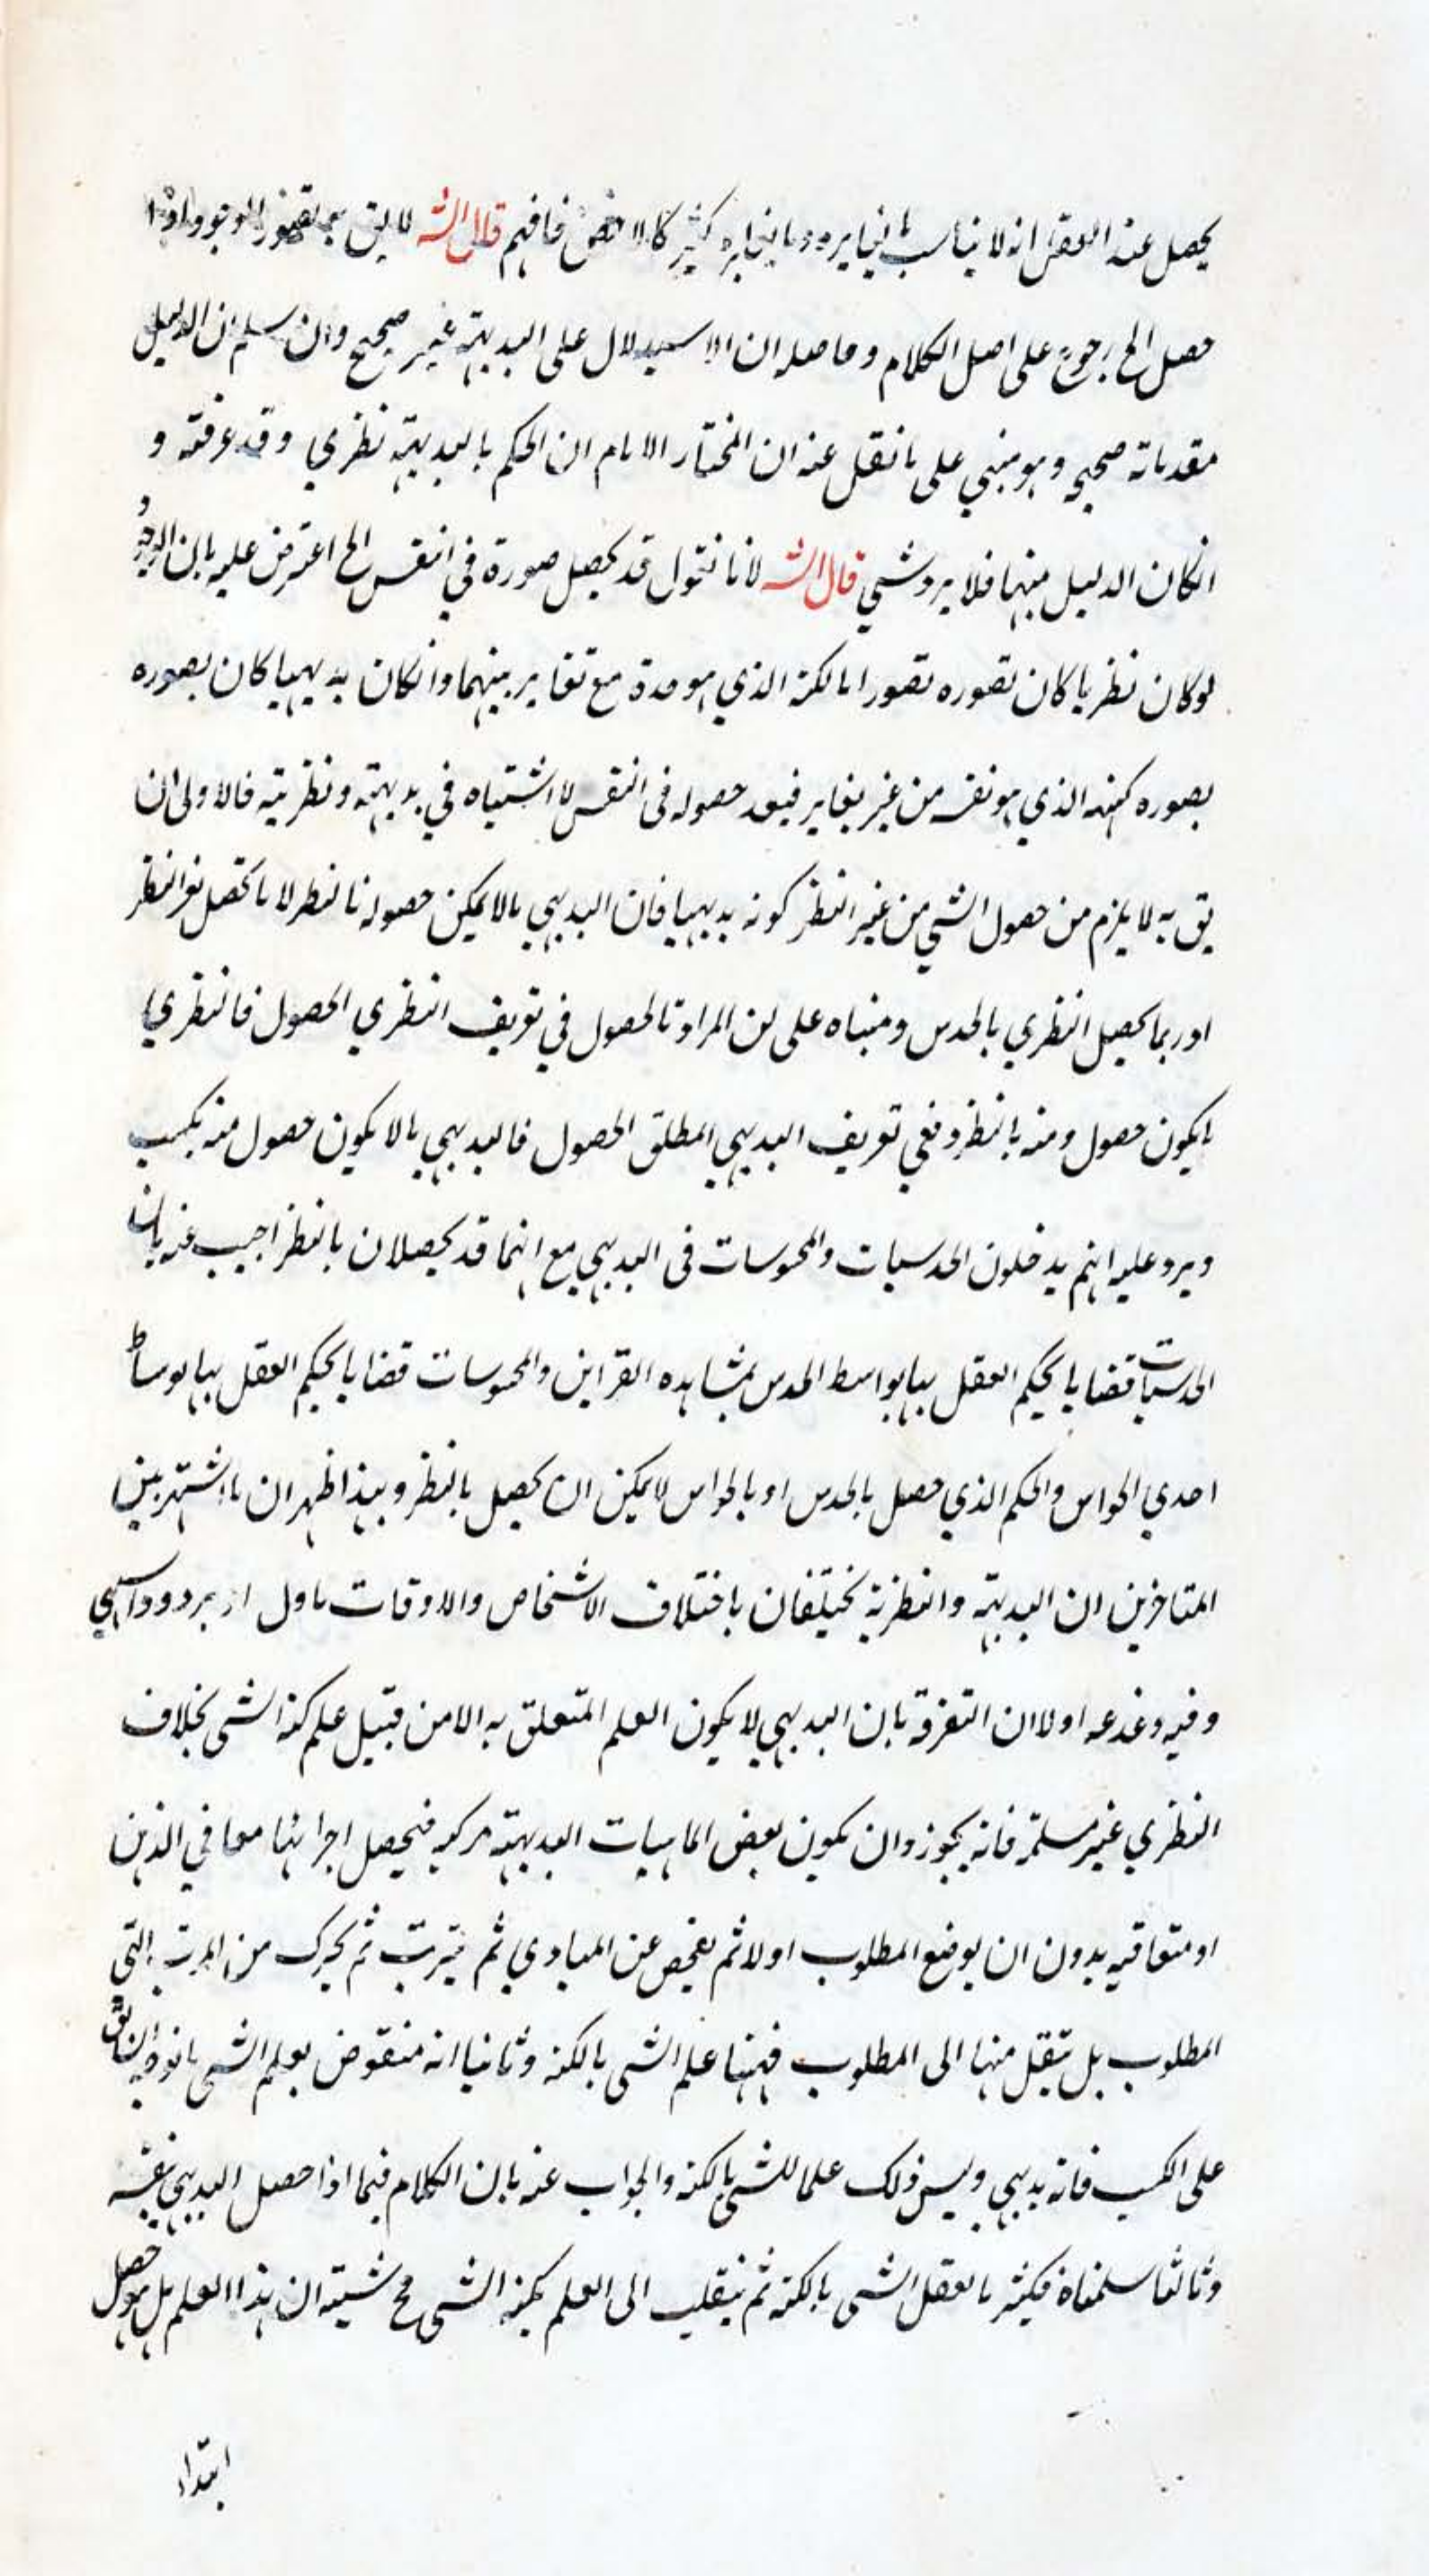 يحصل عند العقل انه لا يناسب ما يغايره وما يغايره كثير كالاخص فافهم قال الش لا يق بعد تصور الوجود واذا
حصل الخ رجوع على اصل الكلام وحاصله ان الاستدلال على البديهة غير صحيح وان سلم ان الدليل
مقدماته صحيح وهو مبني على ما نقل عنه ان المختار الامام ان الحكم بالبديهة نظري وقد عرفته و
انكان الدليل منها فلا يرد شي قال الش لانا نقول قد يحصل صورة في النفس الخ اعترض عليه بان الوجود
لوكان نظريا كان تصوره تصورا بالكنه الذي هو حده مع تغاير بينهما وانكان بديهيا كان تصوره
تصوره كنهه الذي هو نفسه من غير تغاير فبعد حصوله في النفس لا اشتباه في بديهته ونظريته فالاولى ان
يق به لا يلزم من حصول الشي من غير النظر كونه بديهيا فان البديهي ما لا يمكن حصوله بالنظر لا ما يحصل بغير النظر
او ربما يحصل النظري بالحدس ومبناه على ان المراد بالحصول في تعريف النظري الحصول فالنظري
ما يكون حصول ومنه بالنظر وفي تعريف البديهي المطلق الحصول فالبديهي ما لا يكون حصول منه بكسب
ويرد عليه انهم يدخلون الحدسيات والمحسوسات في البديهي مع انهما قد يحصلان بالنظر اجيب عنه بان
الحدسيات قضايا يحكم العقل بها بواسط الحدس بمشاهده القراين والمحسوسات قضايا يحكم العقل بها بوساط
احدي الحواس والحكم الذي حصل بالحدس او بالحواس لا يمكن ان يحصل بالنظر وبهذا ظهر ان ما اشتهر بين
المتاخرين ان البديهة والنظرية يختلفان باختلاف الاشخاص والاوقات ماول
وفيه وغدغه اولا ان التفرقة بان البديهي لا يكون العلم المتعلق به الا من قبيل علم كنه الشي بخلاف
النظري غير مسلمة فانه يجوز وان يكون بعض الماهيات البديهية مركبه فيحصل اجزائها معا في الذهن
او متعاقبه بدون ان يوضع المطلوب اولا ثم يفحص عن المبادي ثم يترتب ثم يحرك من المرتب التي
المطلوب بل ينتقل منها الى المطلوب فههنا علم الشي بالكنه وثانيا انه منقوض بعلم الشي بالوجه
على الكسب فانه بديهي وليس ذلك علما للشي بالكنه والجواب عنه بان الكلام فيما اذا حصل البديهي نفسه
وثالثا سلمناه فكثير ما نعقل الشي بالكنه ثم ينقلب الى العلم بكنه الشي مح شيته ان هذا العلم بل هو حصل
ابتداء